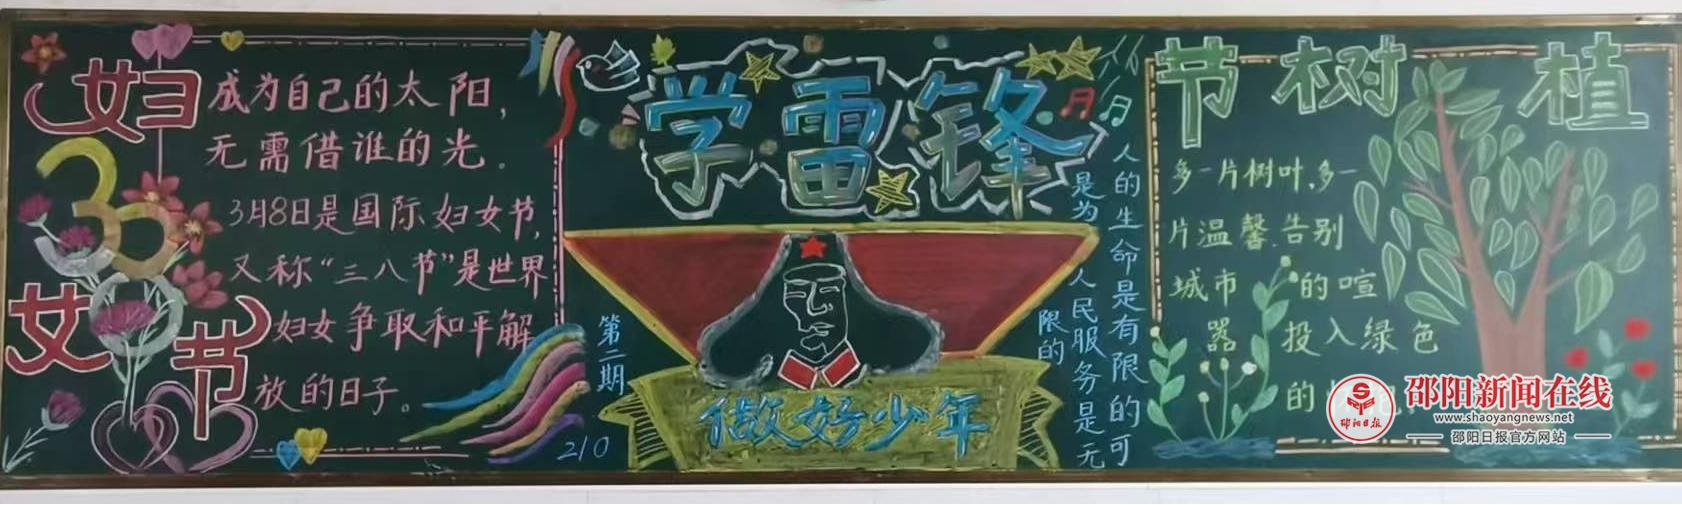 妇
38
女
节
成为自己的太阳，
无需借谁的光。
3月8日是国际妇女节，
又称“三八节”是世界
妇女争取和平解
放的日子。
学雷锋
做好少年
第二期
210
人的生命是有限的可
是为人民服务是无
限的
节树植
多一片树叶，多一
片温馨，告别
城市的喧
嚣投入绿色
的
邵阳日报
邵阳新闻在线
www.shaoyangnews.net
邵阳日报官方网站